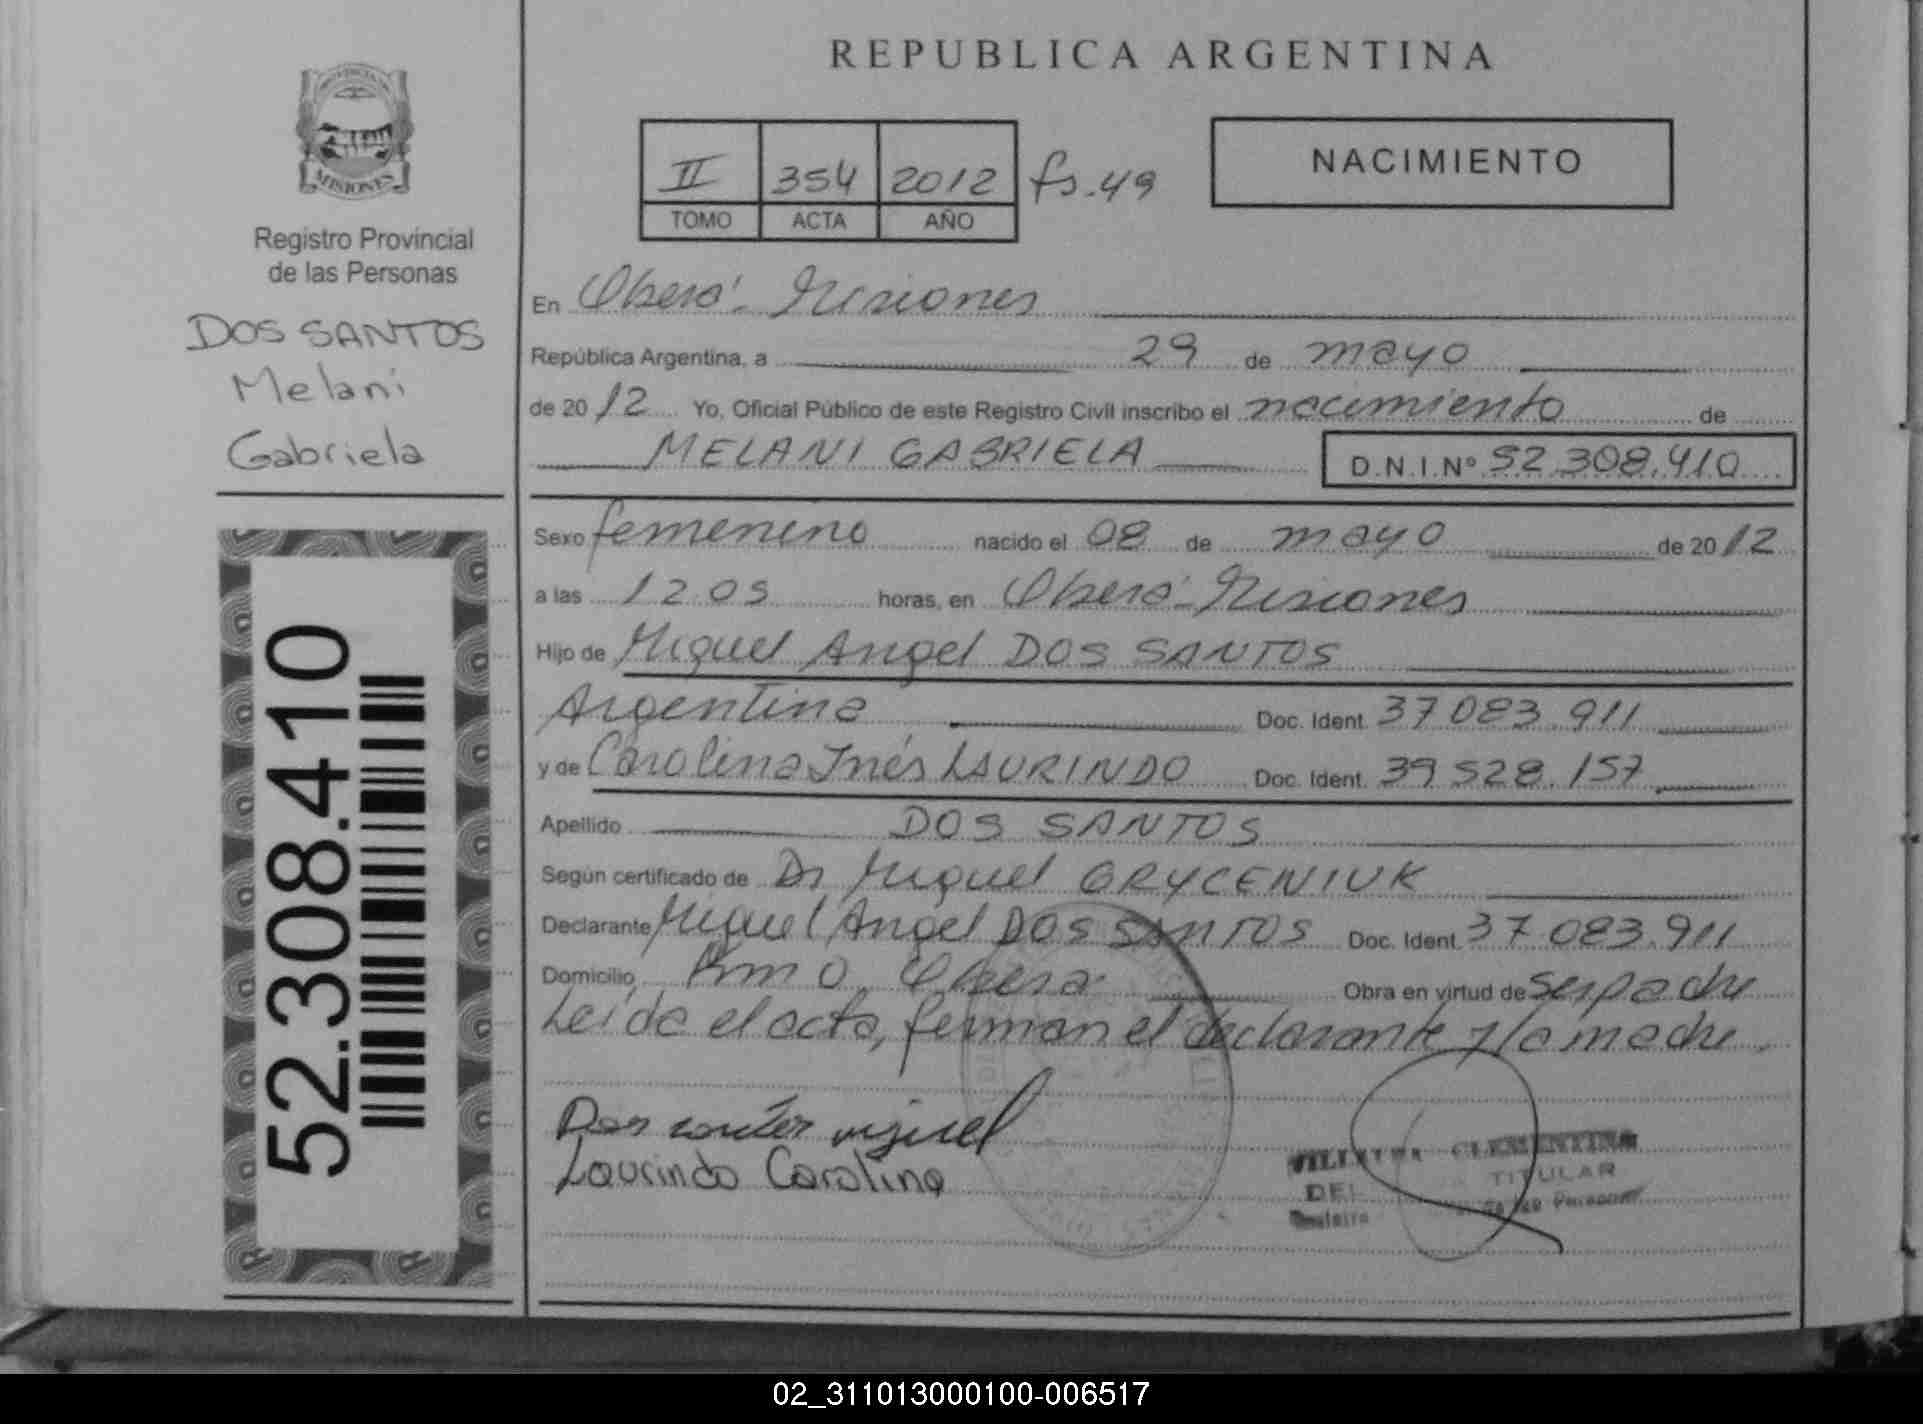 PROVINCIA DE
MISIONES
Registro Provincial
de las Personas
DOS SANTOS
Melani
Gabriela
52.308.410
REPUBLICA ARGENTINA
II 354 2012 fs. 49
TOMO ACTA AÑO
NACIMIENTO
En Oberá - Misiones
República Argentina, a 29 de mayo
de 20 12 Yo, Oficial Público de este Registro Civil inscribo el nacimiento de
MELANI GABRIELA D.N.I.Nº 52.308.410
Sexo femenino nacido el 08 de mayo de 20 12
a las 12.05 horas, en Oberá - Misiones
Hijo de Miguel Angel DOS SANTOS
Argentina Doc. Ident. 37.083.911
y de Carolina Inés LAURINDO Doc. Ident. 39.528.157
Apellido DOS SANTOS
Según certificado de Dr Miguel GRYCENIUK
Declarante Miguel Angel DOS SANTOS Doc. Ident. 37.083.911
Domicilio Km 0 Oberá Obra en virtud de ser padre
Leída el acta, firman el declarante y la madre.
Dos santos miguel
Laurindo Carolina
CLEMENTINA
TITULAR
DEL
de las Personas
02_311013000100-006517